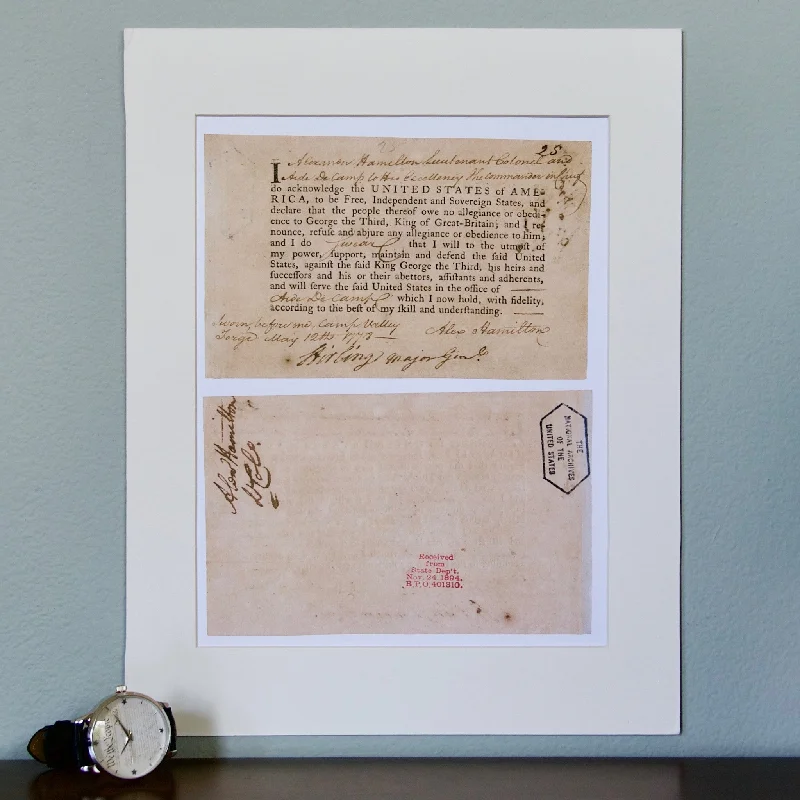 25
I Alexander Hamilton Lieutenant Colonel and
Aide De Camp to His Excellency the Commander in Chief
do acknowledge the UNITED STATES of AME-
RICA, to be Free, Independent and Sovereign States, and
declare that the people thereof owe no allegiance or obedi-
ence to George the Third, King of Great-Britain; and I re-
nounce, refuse and abjure any allegiance or obedience to him;
and I do swear that I will to the utmost of
my power, support, maintain and defend the said United
States, against the said King George the Third, his heirs and
successors and his or their abettors, assistants and adherents,
and will serve the said United States in the office of
Aide De Camp which I now hold, with fidelity,
according to the best of my skill and understanding.
Sworn before me, Camp Valley
Forge May 12th 1778
Alex Hamilton
Stirling Major Genl.
Alex Hamilton
THE
NATIONAL ARCHIVES
OF THE
UNITED STATES
Received
from
State Dep't.
Nov. 24 1894.
R.P.O. 401310.
We the People